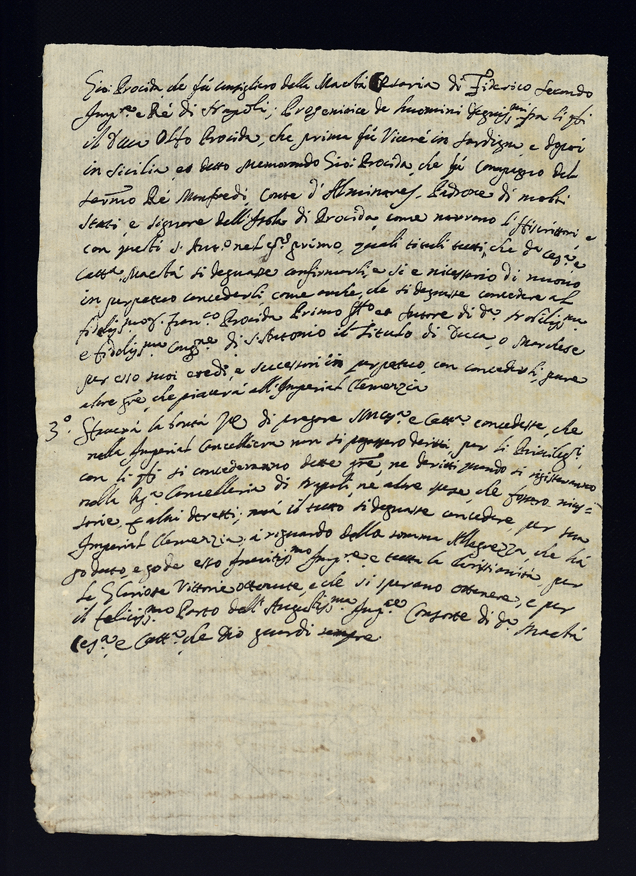 Gio: Procida che fù Consigliero della Maestà Cesaria di Federico Secondo
Imp.re e Ré di Napoli; Progenitore de huomini degniss.mi fra li q.li
il Duca Olfo Procida, che prima fù Viceré in Sardigna, e dopoi
in Sicilia et detto Memorando Gio: Procida, che fù Compagno del
Seren.mo Ré Manfredi, Conte d'Alminares, Padrone di molti
Stati e Signore dell'Isola di Procida come narrano l'Istorici, e
con questi S. Ant.o nel primo, quali tituli tutti, che da Ces.a e
Catt.a Maestà si degnasse confirmarli e si è necessario di nuovo
in perpetuo concederli come anche, che si degnasse concedere al
fidelis.mo Fran.co Procida Primo et di d.a
e fidelis.ma di S. Antonio il Titulo di Duca, o Marchese
per esso suoi eredi, e successori in perpetuo, con concederli, pure
altre gre, che piacerà all'Imperial Clemenza
3.o Starà la bontà di pregare e Catt.a concedesse, che
nella Imperial Cancelleria non si paghassero deritti per li Privilegi,
con li q.li si concederanno dette gre, ne deritti quando si registraranno
nella Cancelleria di Napoli, ne altre spese, che fossero neces=
sarie, e altri deretti; ma il tutto si degnasse concedere per sua
Imperial Clemenza, à riguardo della somma Allegrezza, che hà
goduto, e gode esso Imp.re e tutta la Cristianità, per
le Gloriose Vittorie ottenute, e che si sperano ottenere, e per
il felicis.mo Parto dell'Augustis.ma Imp.ce Consorte di d.a Maestà
Ces.a, e Catt.a, che Dio guardi sempre